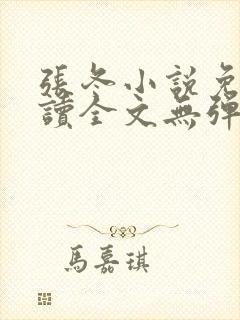 張冬小說免
讀全文無彈
馬嘉琪